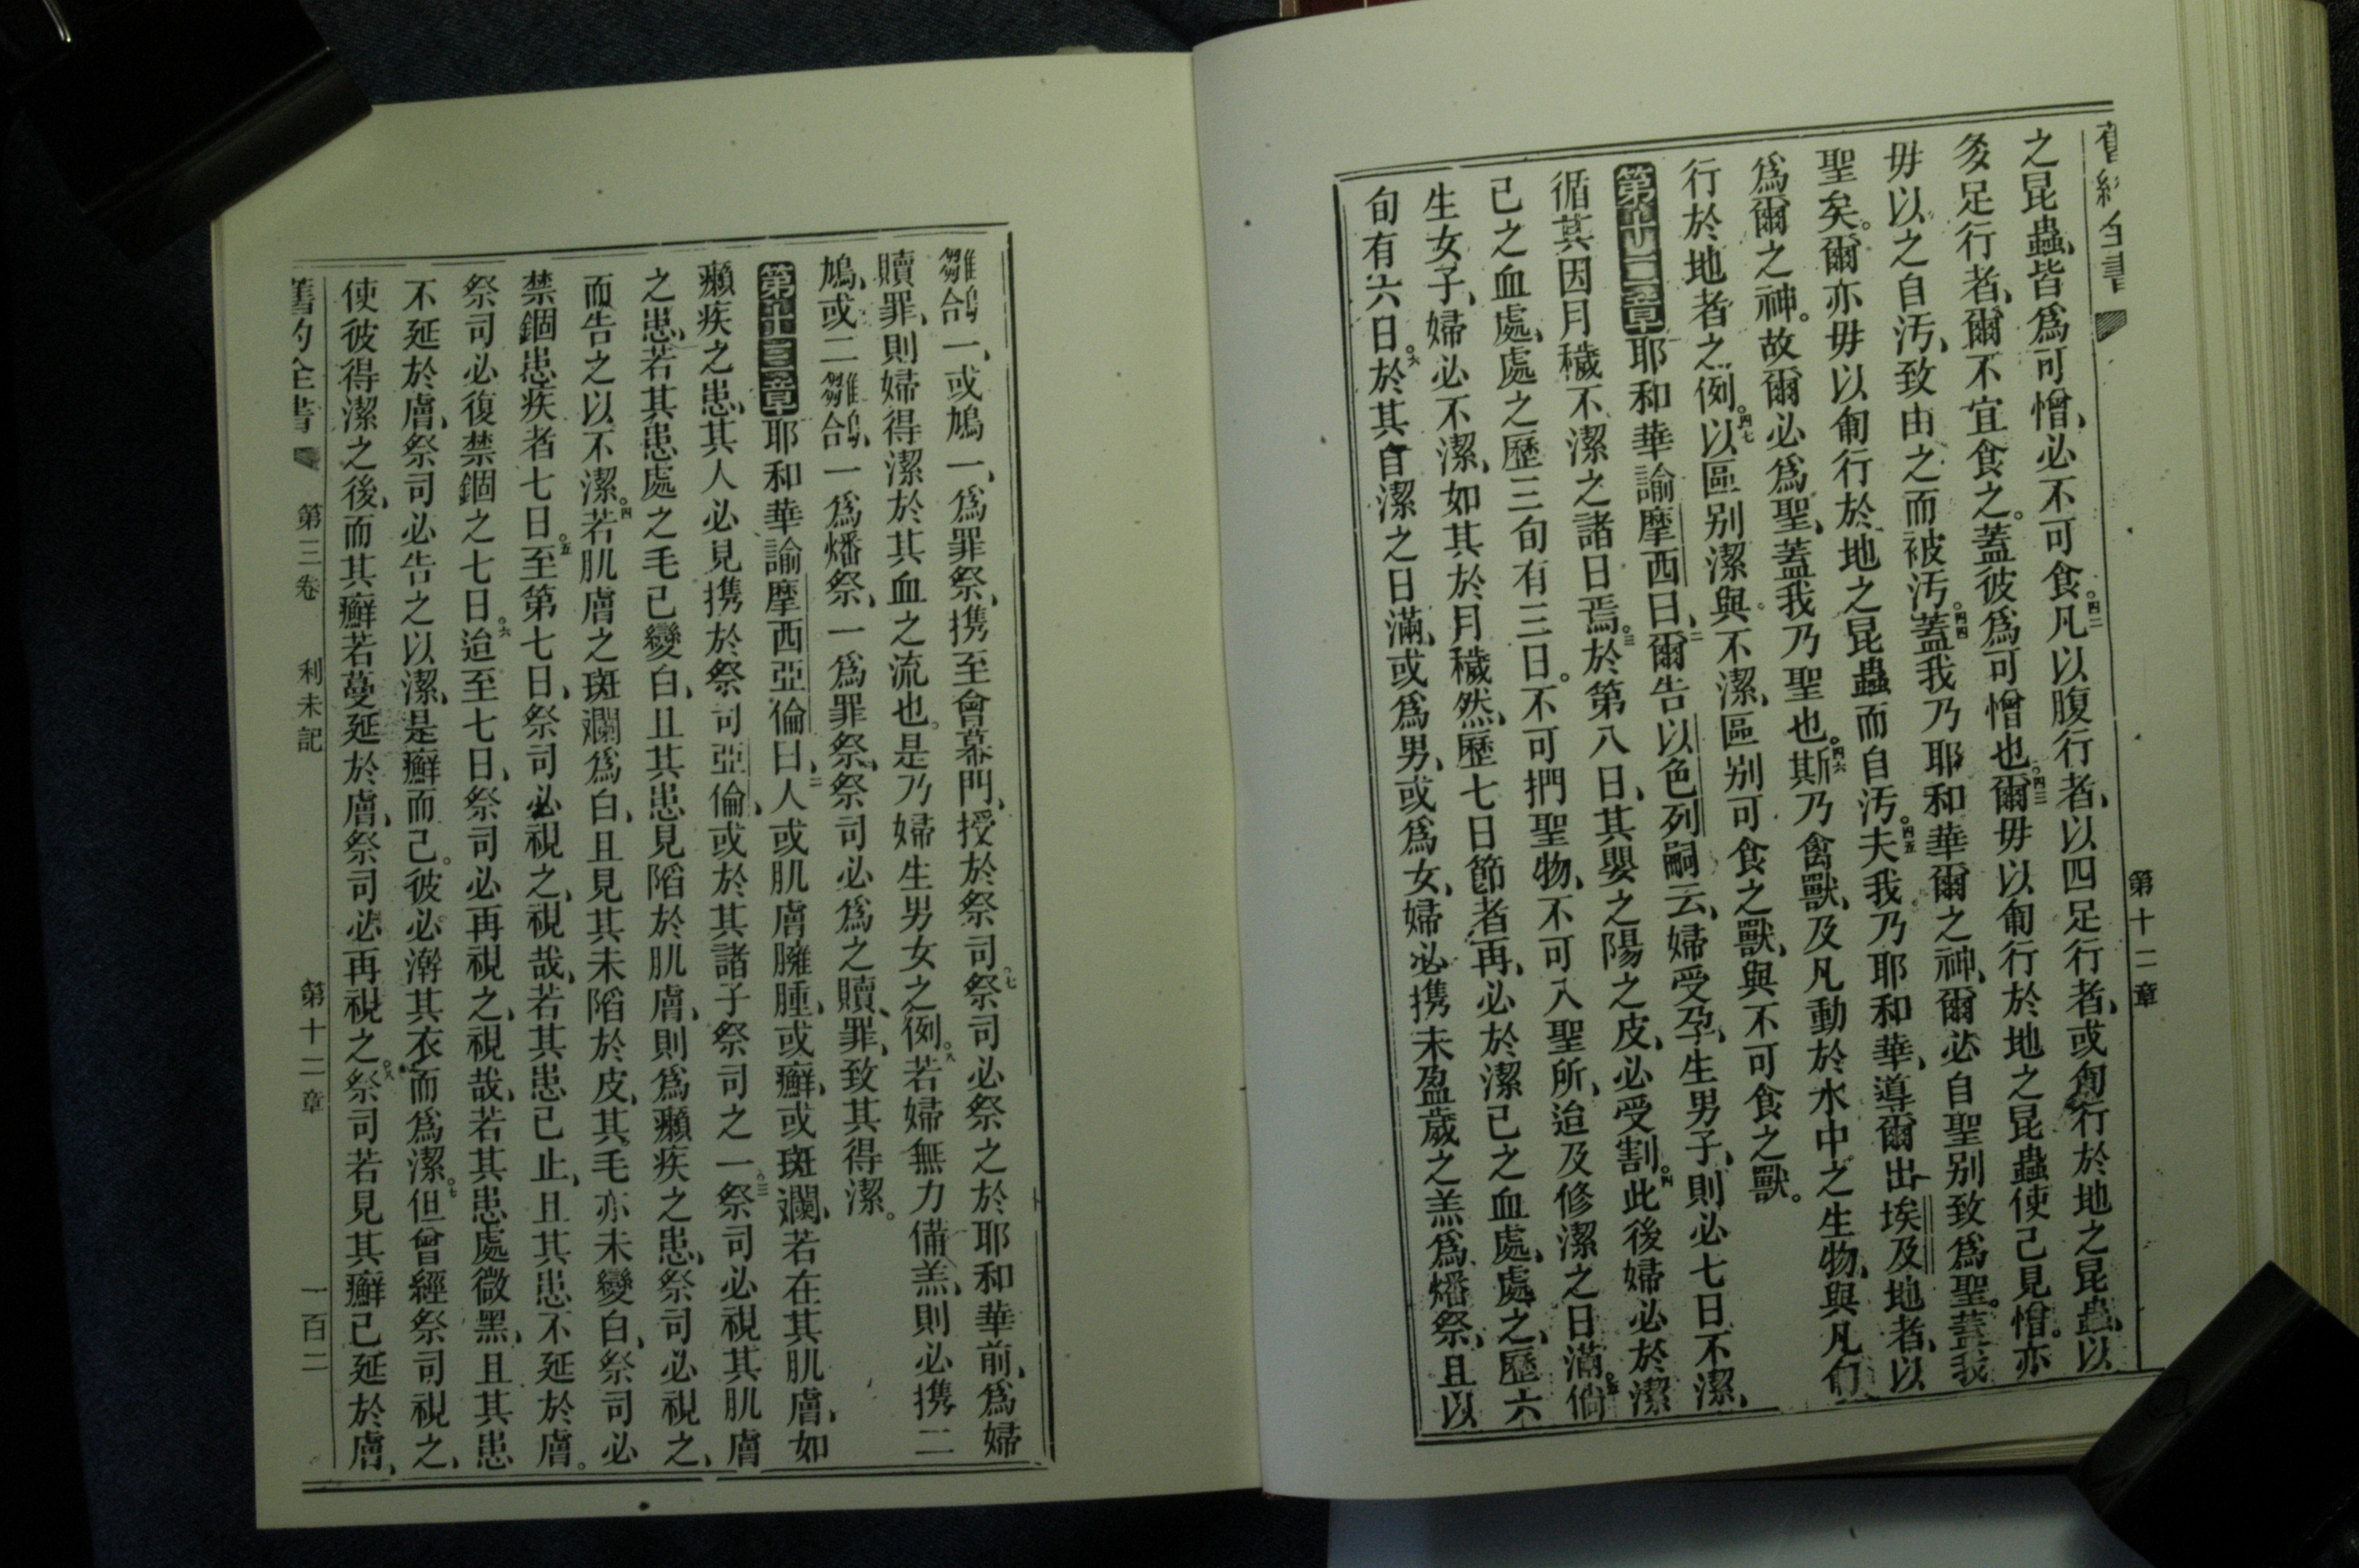 舊約全書
第十二章
之昆蟲、皆爲可憎、必不可食。四二凡以腹行者、以四足行者、或匍行於地之昆蟲、以
多足行者、爾不宜食之。蓋彼爲可憎也。四三爾毋以匍行於地之昆蟲使己見憎。亦
毋以之自汚、致由之而被汚。四四蓋我乃耶和華爾之神、爾必自聖别致爲聖。蓋我
聖矣。爾亦毋以匍行於地之昆蟲而自汚。四五夫我乃耶和華、導爾出埃及地者、以
爲爾之神。故爾必爲聖、蓋我乃聖也。四六斯乃禽獸、及凡動於水中之生物、與凡匍
行於地者之例。四七以區别潔與不潔、區别可食之獸、與不可食之獸。
第十二章耶和華諭摩西曰、二爾告以色列嗣云、婦受孕、生男子、則必七日不潔、
循其因月穢不潔之諸日焉。三於第八日、其嬰之陽之皮、必受割。四此後婦必於潔
己之血處、處之歷三旬有三日。不可捫聖物、不可入聖所、迨及修潔之日滿。五倘
生女子、婦必不潔、如其於月穢然、歷七日節者再、必於潔己之血處、處之、歷六
旬有六日。六於其自潔之日滿、或爲男、或爲女、婦必攜未盈歲之羔爲燔祭、且以
雛鴿一、或鳩一、爲罪祭、攜至會幕門、授於祭司。七祭司必祭之於耶和華前、爲婦
贖罪、則婦得潔於其血之流也。是乃婦生男女之例。八若婦無力備羔、則必攜二
鳩、或二雛鴿、一爲燔祭、一爲罪祭、祭司必爲之贖罪、致其得潔。
第十三章耶和華諭摩西亞倫曰、二人或肌膚臃腫、或癬、或斑斕、若在其肌膚、如
癩疾之患、其人必見攜於祭司亞倫、或於其諸子祭司之一。三祭司必視其肌膚
之患、若其患處之毛已變白、且其患見陷於肌膚、則爲癩疾之患、祭司必視之、
而告之以不潔。四若肌膚之斑斕爲白、且見其未陷於皮、其毛亦未變白、祭司必
禁錮患疾者七日。五至第七日、祭司必視之、視哉、若其患已止、且其患不延於膚。
祭司必復禁錮之七日。六迨至七日、祭司必再視之、視哉、若其患處微黑、且其患
不延於膚、祭司必告之以潔、是癬而已。彼必澣其衣、而爲潔。七但曾經祭司視之、
使彼得潔之後、而其癬若蔓延於膚、祭司必再視之。八祭司若見其癬已延於膚、
舊約全書 第三卷 利未記 第十二章 一百二